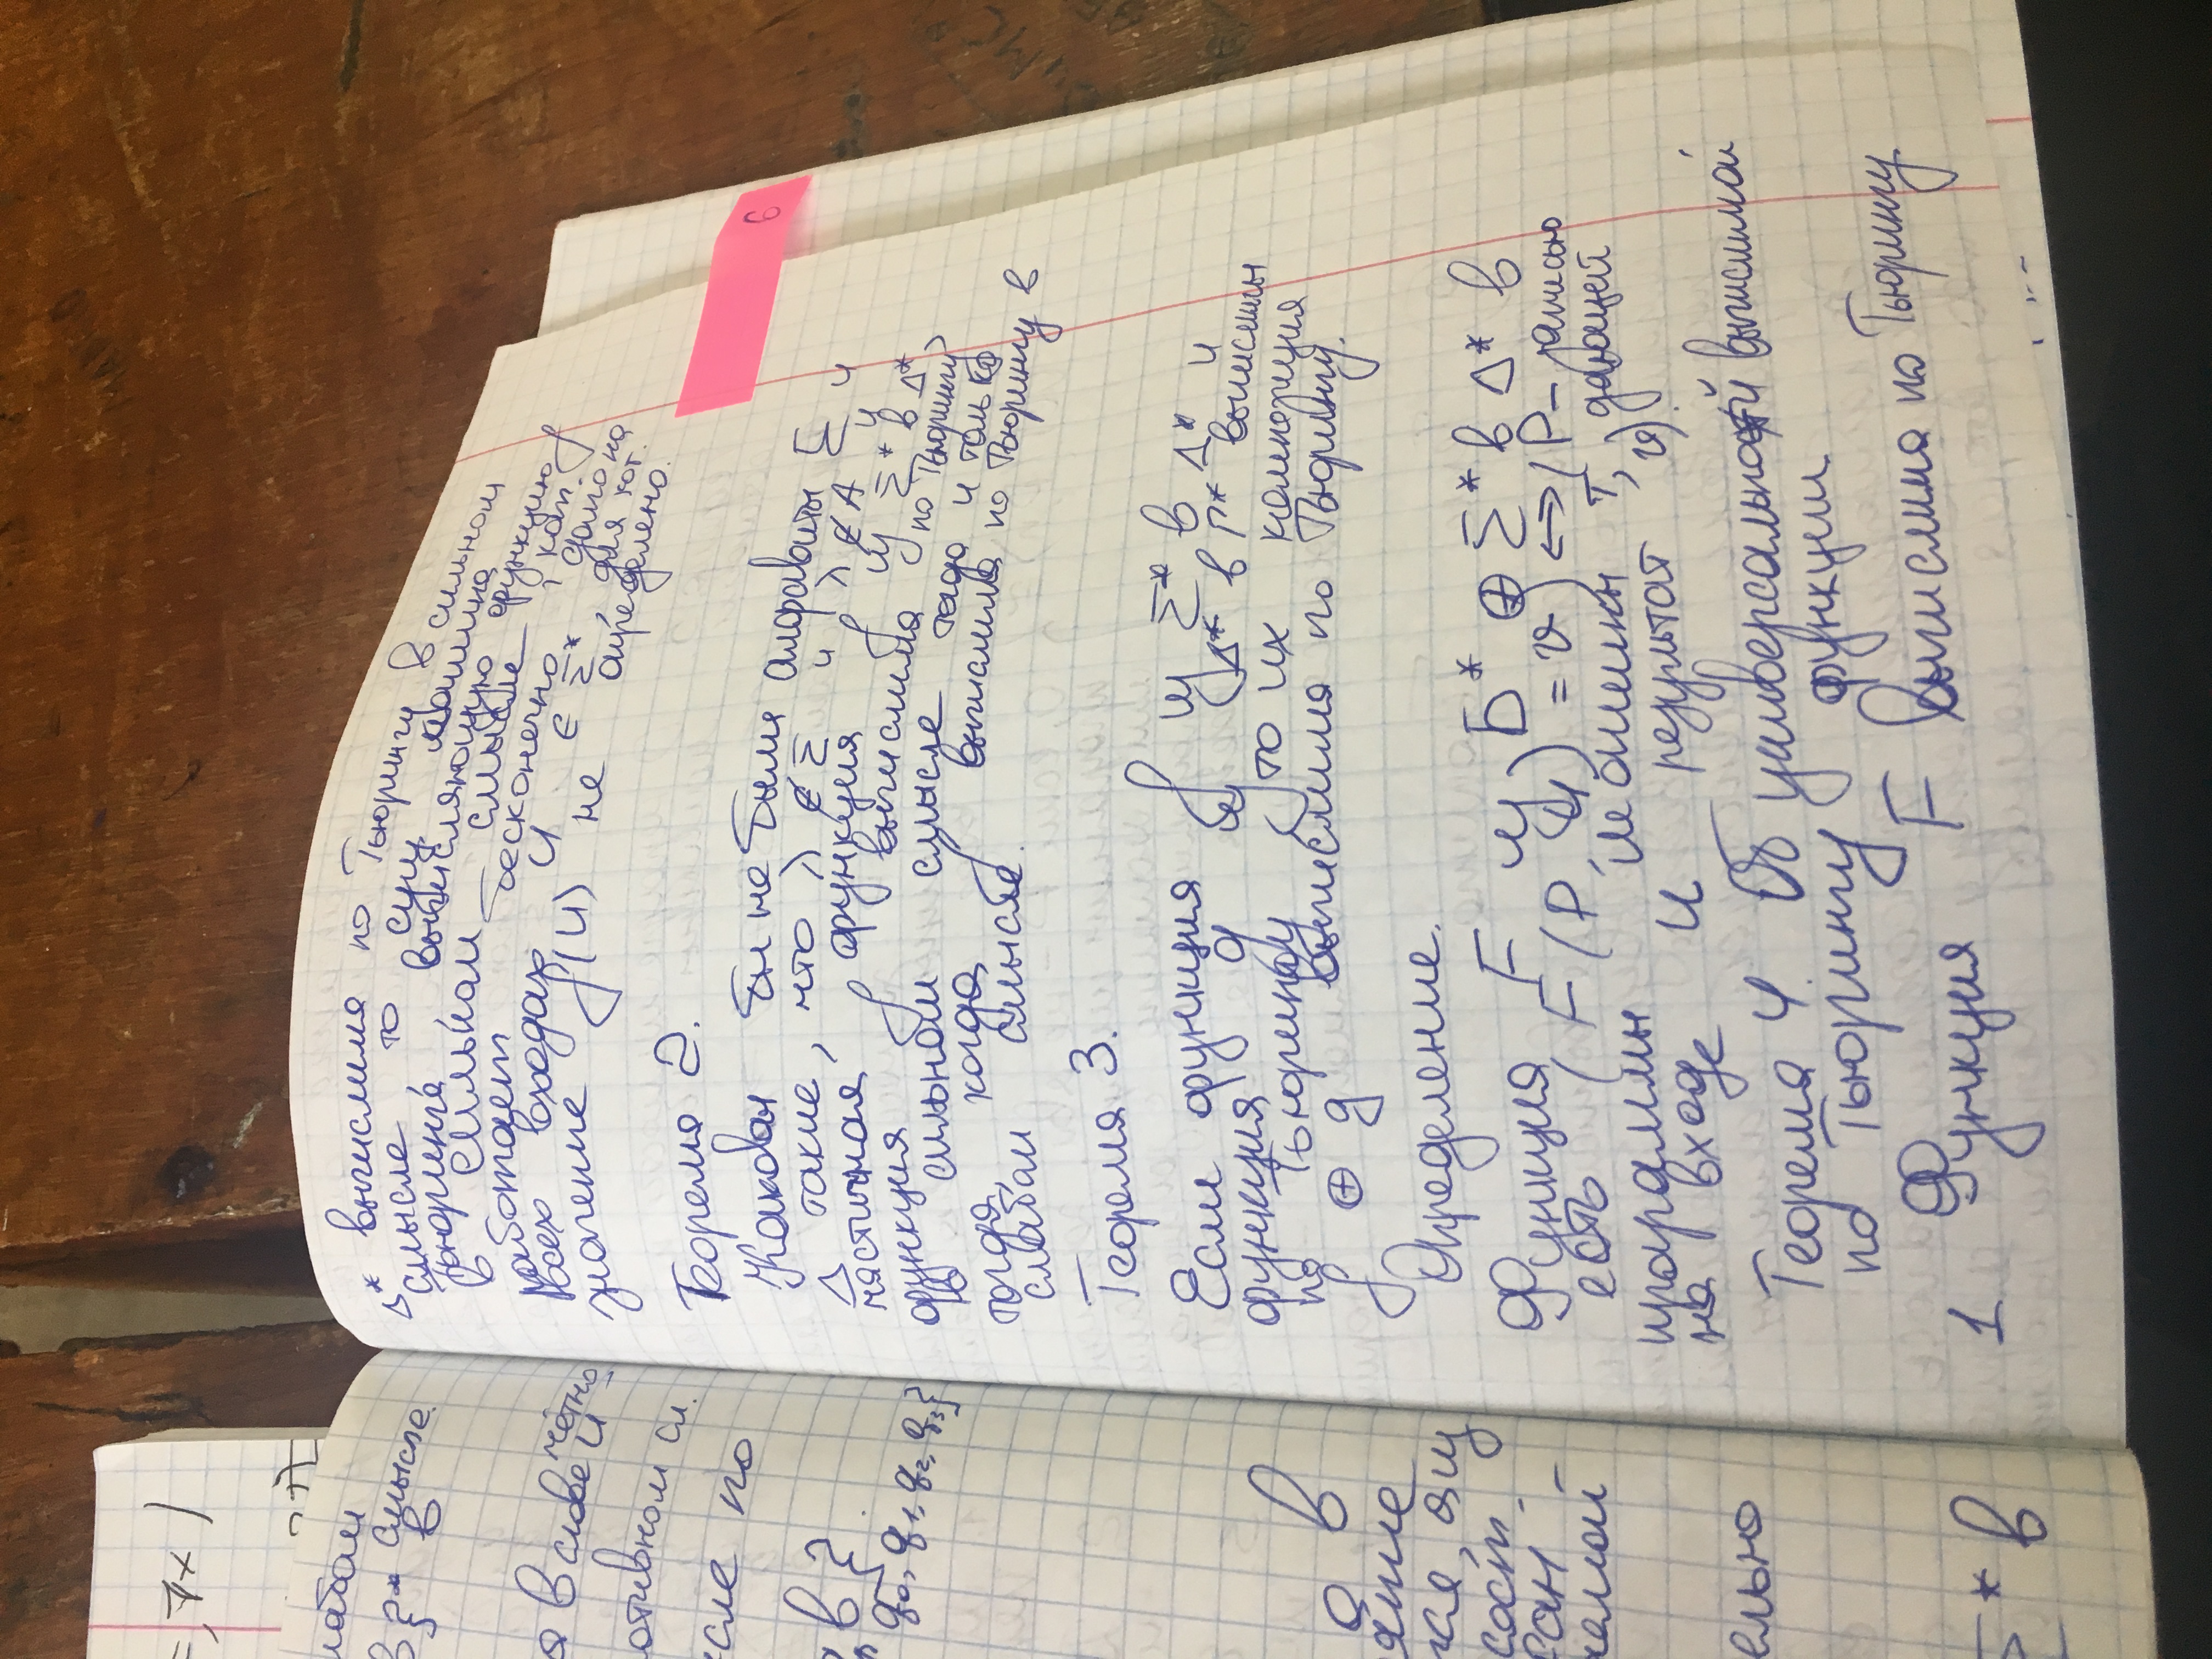 =, 7x )
слабом
смысле.
в}* в
я в слове и
чётно-
отивном сл.
сле по
в}.
q₀, q₁, q₂, q₃}
о в
ятие
сост.
емой
ельно
Σ* в
Δ* вычислима по Тьюрингу в сильном
смысле, то сущ. машина
Тьюринга, вычисляющую функцию f
в сильном смысле, кот.
работает бесконечно долго на
всех входах U ∈ Σ*, для кот.
значение f(U) не определено.
Теорема 2.
Каковы бы не были алфавиты Σ и
Δ такие, что λ ∉ Σ и λ ∉ Δ и
частичная функция f из Σ* в Δ*
функция f вычислима по Тьюрингу
в сильном смысле тогда и только
тогда, когда f вычислима по Тьюрингу в
слабом смысле.
Теорема 3.
Если функция f из Σ* в Δ* и
функция g из Δ* в Г* вычислимы
по Тьюрингу, то их композиция
f ⊕ g вычислима по Тьюрингу.
Определение.
Функция F из Б* ⊕ Σ* в Δ* в
есть (F(P, U) = v) ↔ (P – записью
программы машины T, дающей
на входе U результат v).
Теорема 4. Об универсальной вычислимой
по Тьюрингу функции
1 Функция F вычислима по Тьюрингу
6